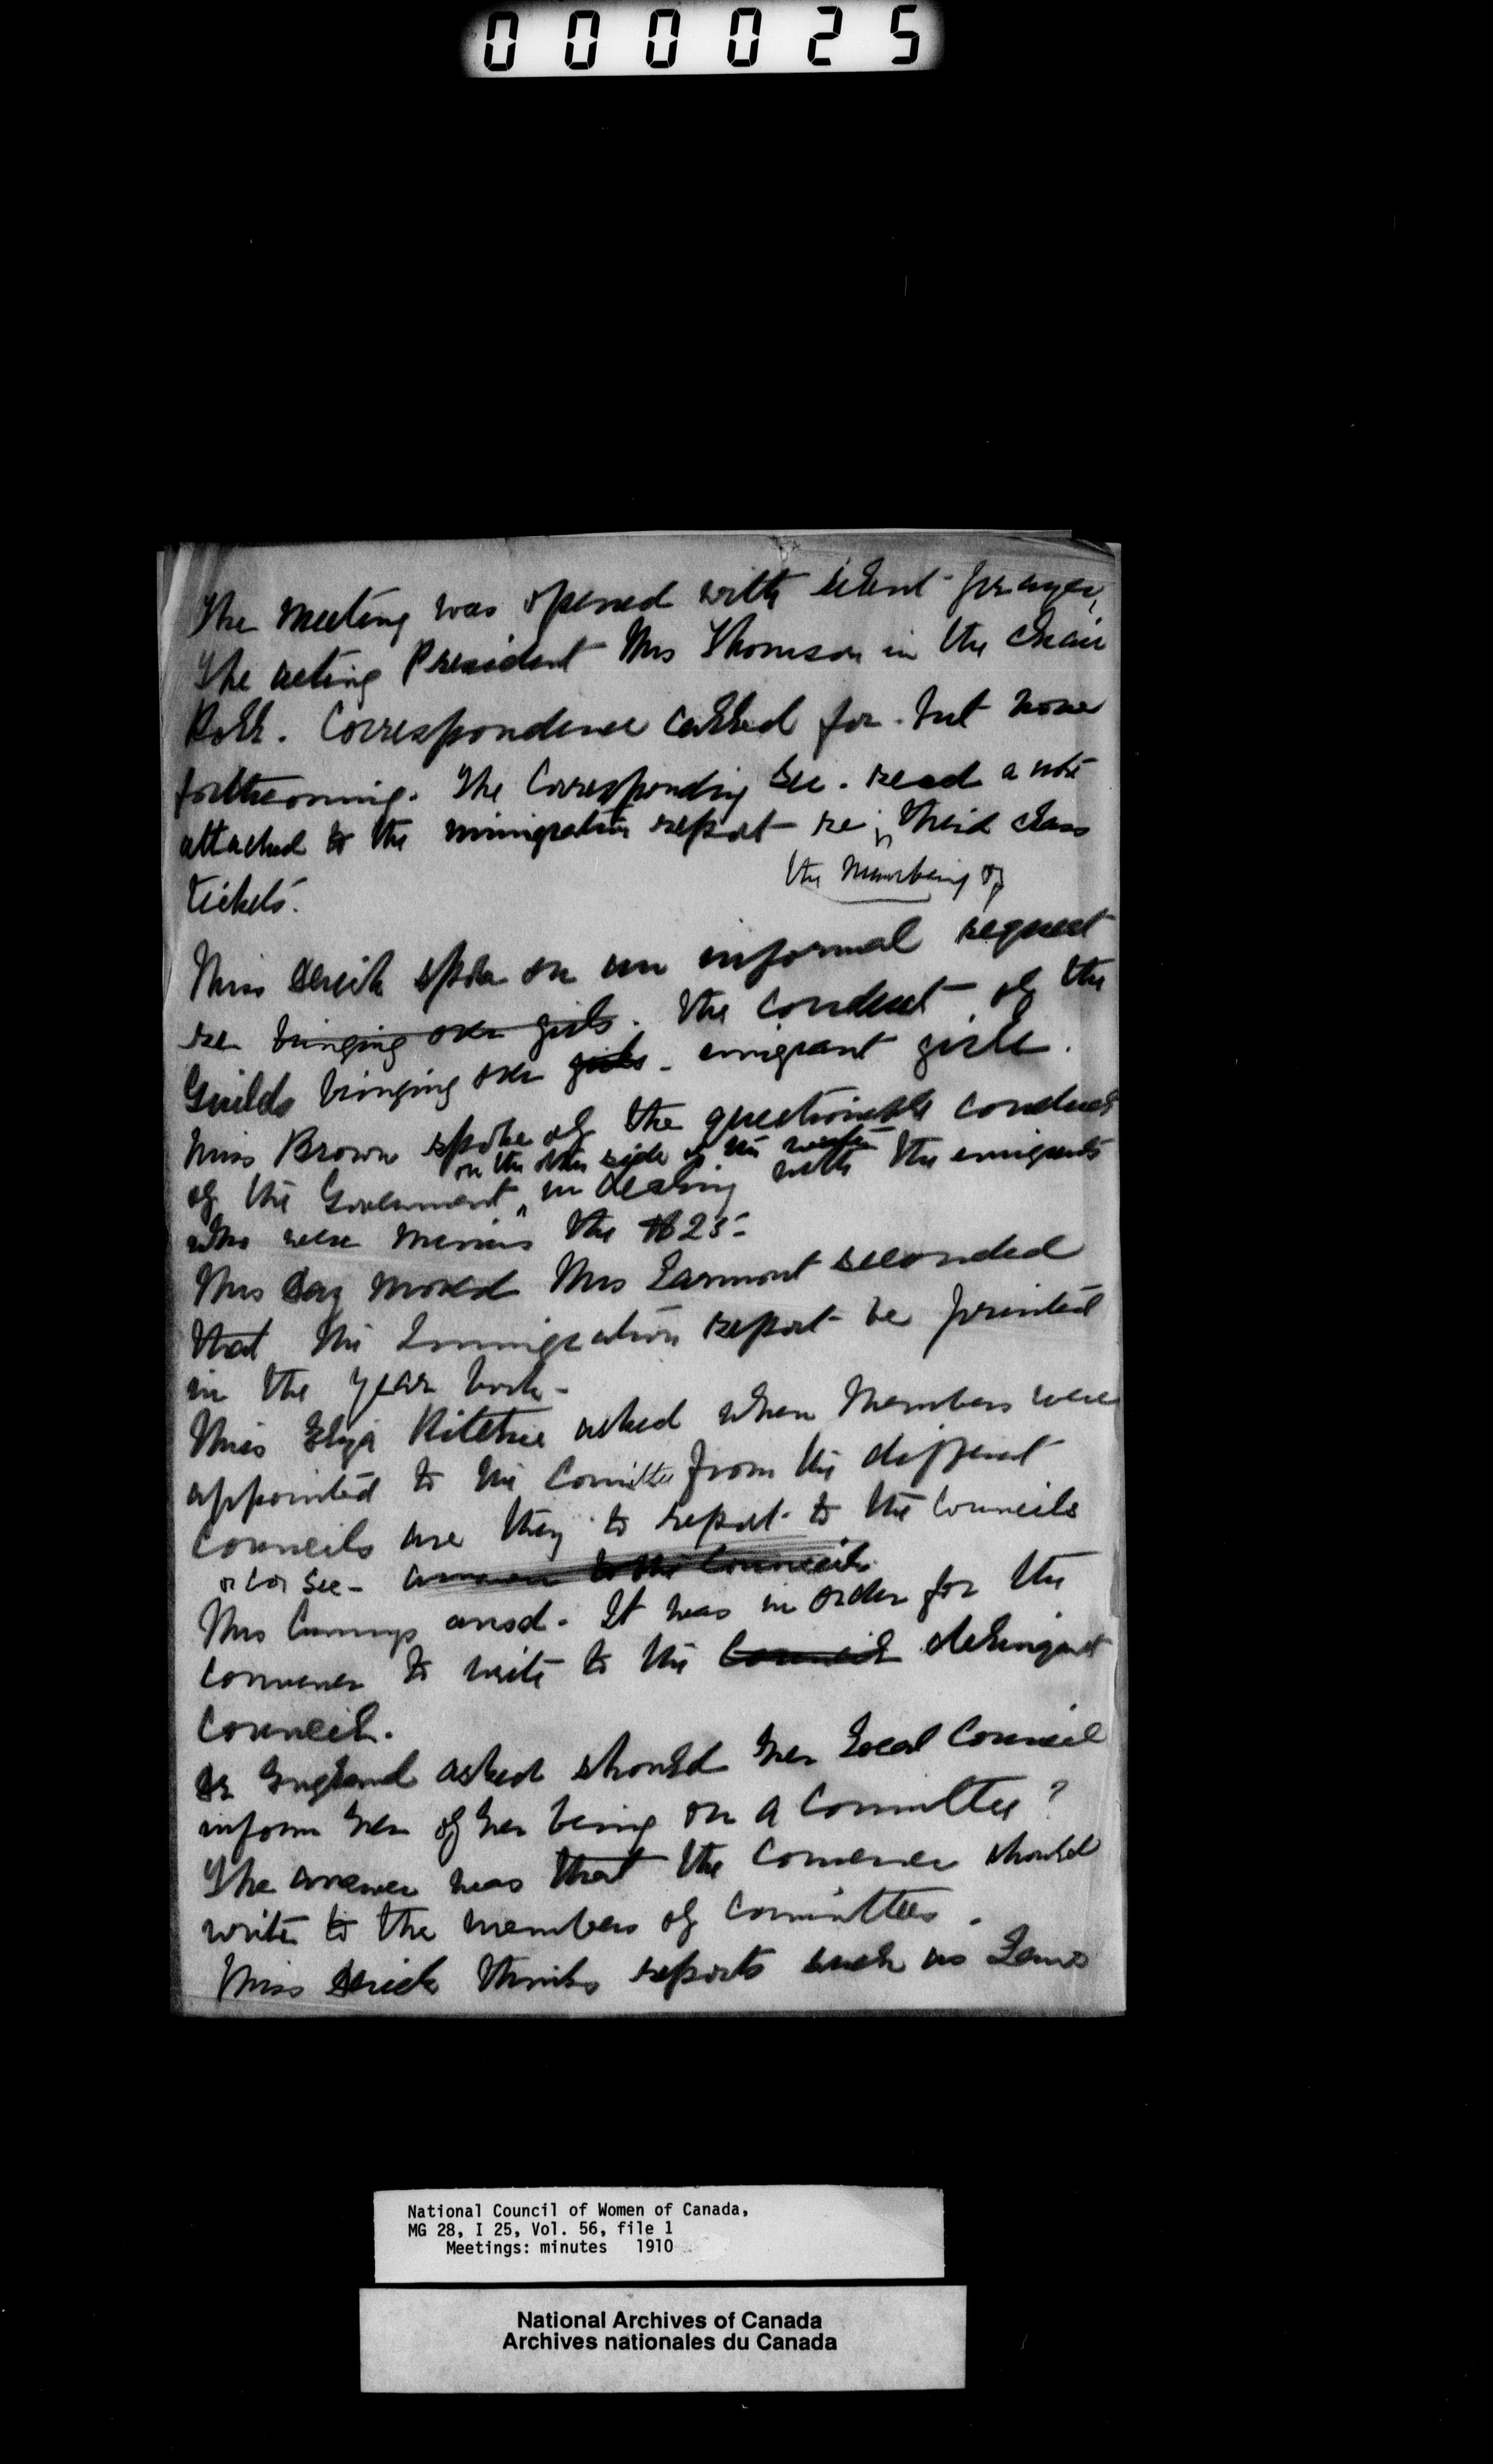 000025
The meeting was opened with silent prayer,
The acting President Mrs Thomson in the chair
Roll. Correspondence called for but none
forthcoming. The Corresponding Sec. read a note
attached to the immigration report re third class
the numbering of
tickets.
Miss Derick spoke on an informal request
re bringing over girls. the conduct of the
Guilds bringing over girls - emigrant girls.
Miss Brown spoke of the questionable conduct
on the other side of the water
of the Government in dealing with the emigrants
who were minus the $25-
Mrs Day moved Mrs Larmont seconded
that the Immigration report be printed
in the year book -
Miss Eliza Ritchie asked when Members were
appointed to the Committee from the different
Councils are they to report to the Councils
or Cor Sec - to the Councils
Mrs Cummings ansd. It was in order for the
convener to write to the Council delinquent
Council.
Dr England asked should her Local Council
inform her of her being on a Committee?
The answer was that the Convener should
write to the members of Committees.
Miss Derick thinks reports such as Laws
National Council of Women of Canada,
MG 28, I 25, Vol. 56, file 1
Meetings: minutes 1910
National Archives of Canada
Archives nationales du Canada